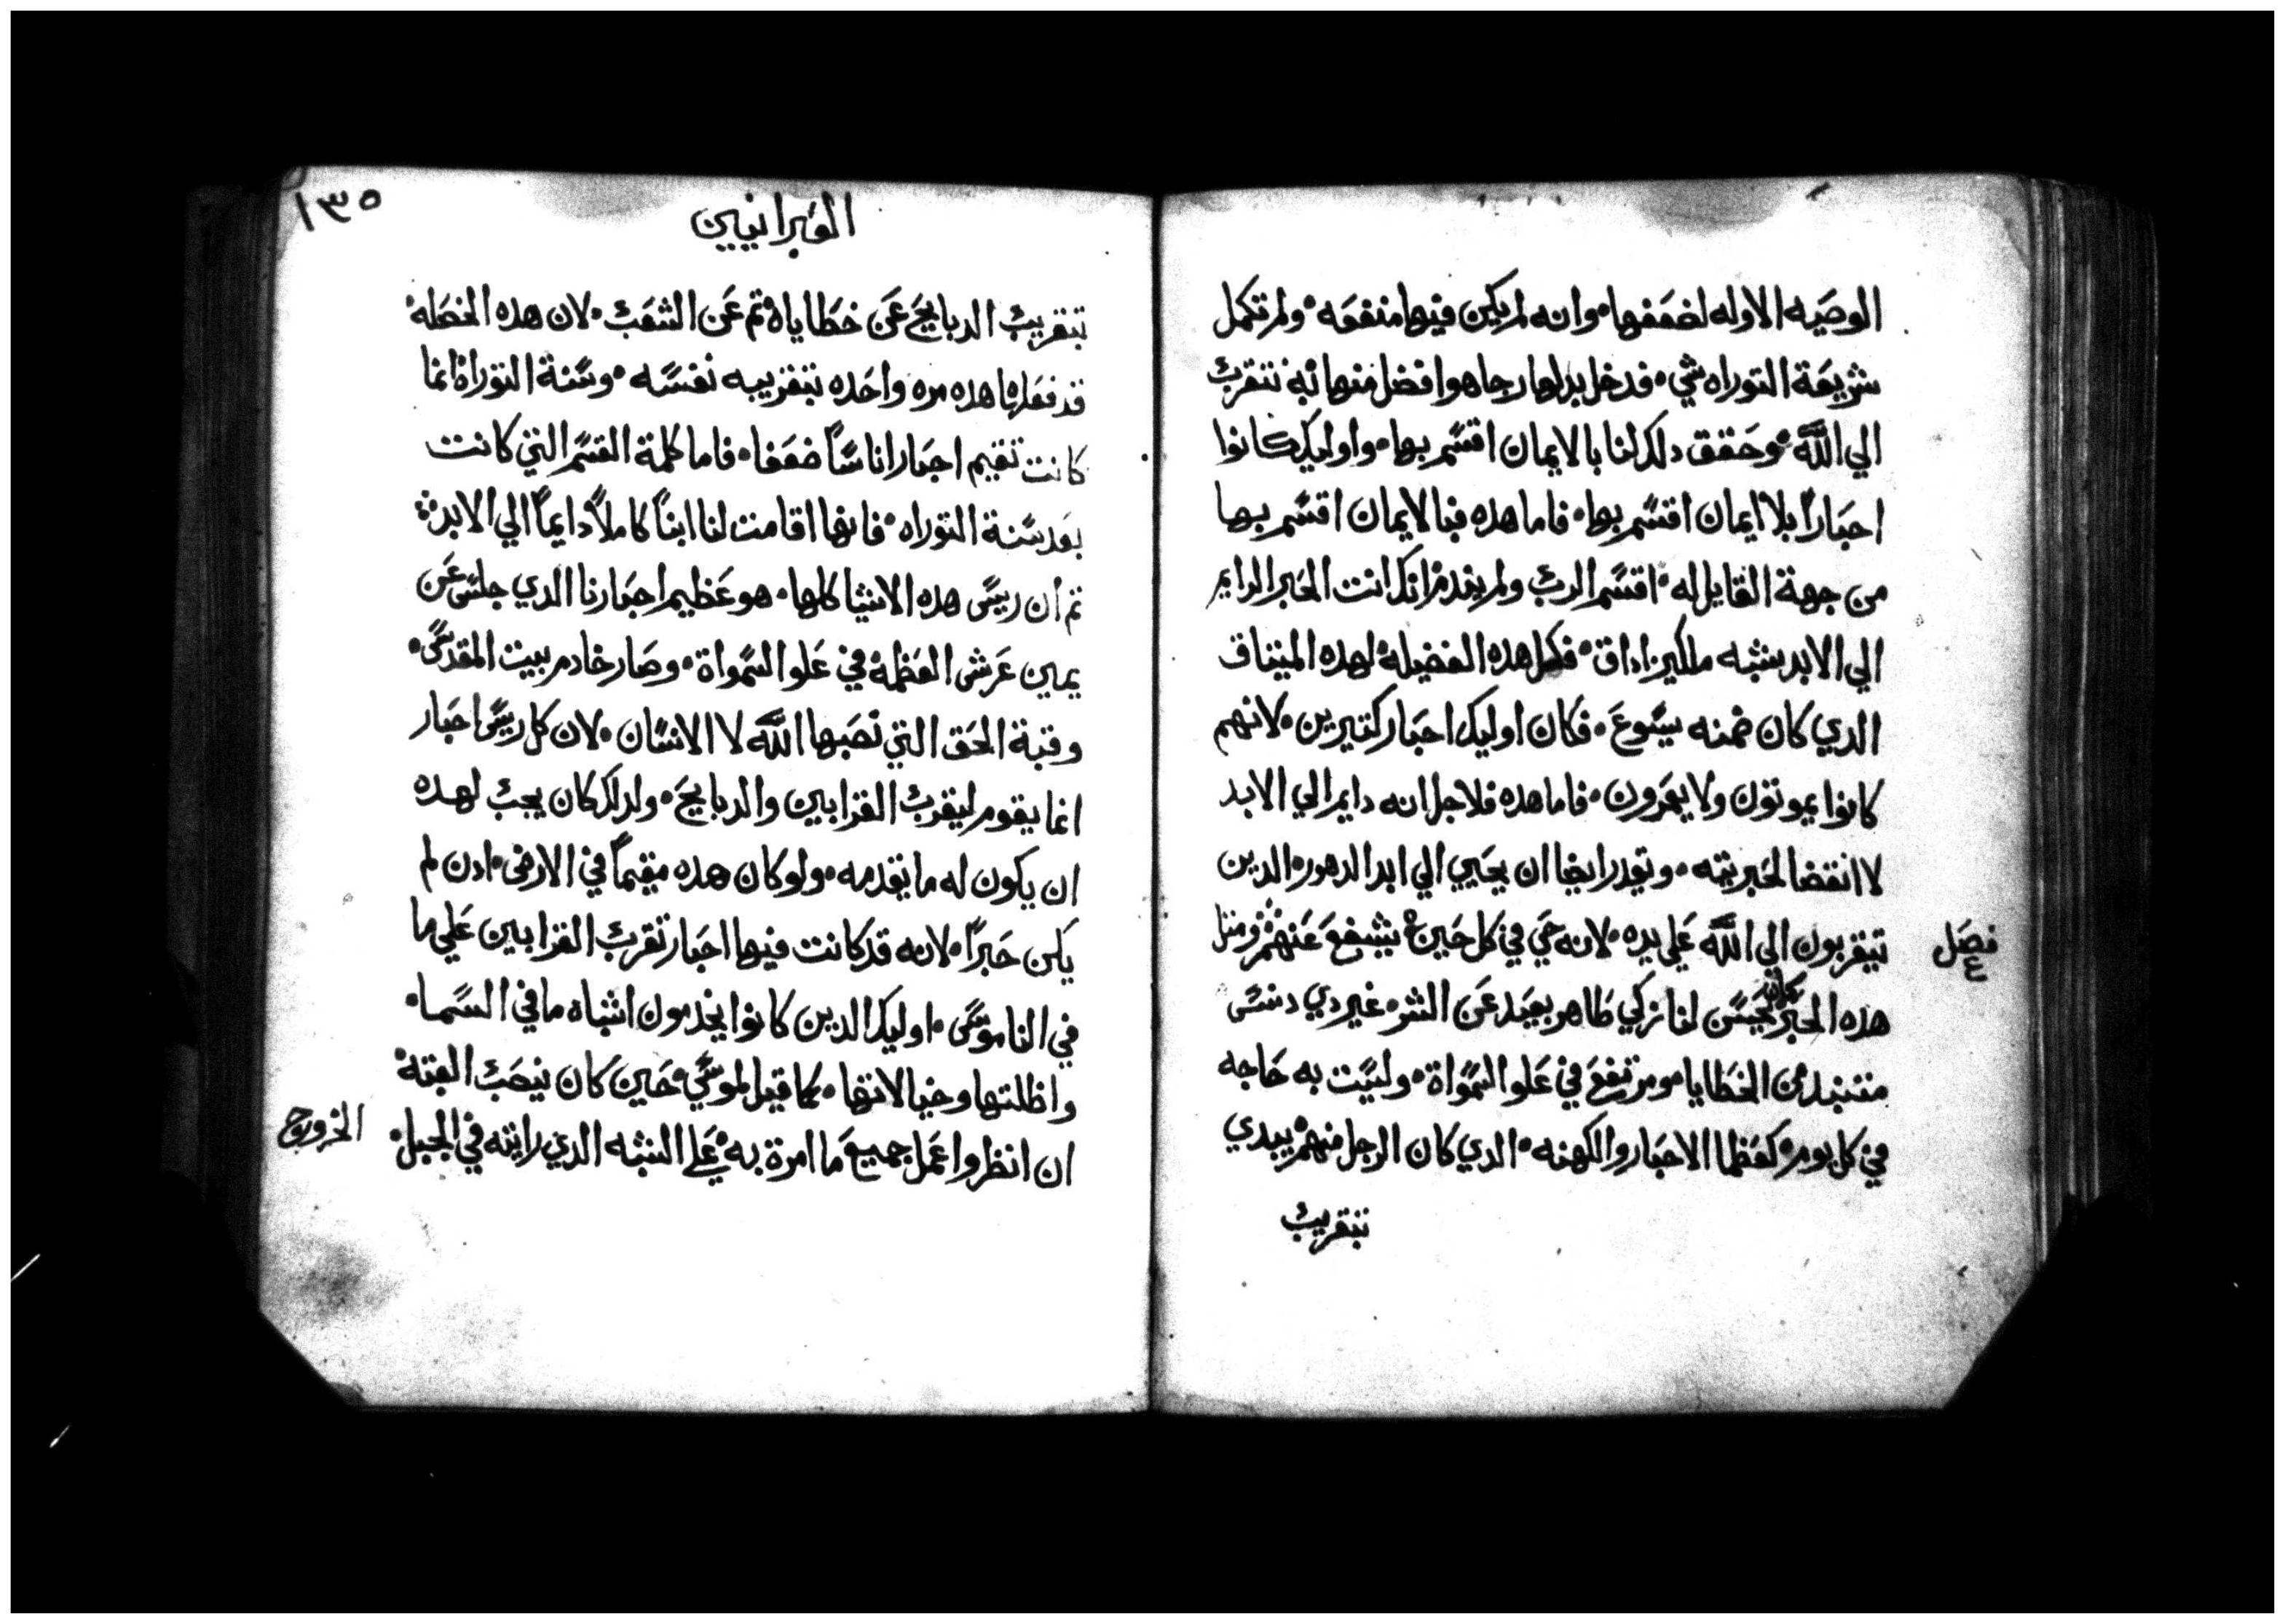 الوصيه الاوله لضعفها۰ وانه لم يكن فيها منفعه۰ ولم تكمل
شريعة التوراه شي۰ فدخل بدلها رجا هوا فضل منها به نتقرب
الي الله۰ وحقق دلك لنا بالايمان اقسم بها۰ واوليك كانوا
احباراً بلا ايمان اقسم بها۰ فاما هده فبالايمان اقسم بها
من جهة القايل له۰ اقسم الرب ولم يندم انك انت الحبر الدايم
الي الابد بشبه ملكيزاداق۰ فكل هده الفضيله لهده الميتاق
الدي كان ضمنه يسوع۰ فكان اوليك احبار كتيرين۰ لانهم
كانوا يموتون ولا يعمرون۰ فاما هده فلاجل انه دايم الي الابد
لا انقضا لحبريته۰ ويقدر ايضا ان يحيي الي ابد الدهور۰ الدين
تيقربون الي الله علي يده۰ لانه حي في كل حين۰ يشفع عنهم ومتل
فصل
٤
هده الحبر كان يحسن لنا زكي طاهر بعيد عن الشر۰ غير دي دنس
متنبد من الخطايا۰ ومرتفع في علو السمواة۰ وليست به حاجه
في كل يوم كعظما الاحبار والكهنه۰ الدي كان الرجل منهم يبدي
تبقريب
١٣٥
العبرانيين
تبقريب الدبايح عن خطاياه تم عن الشعب۰ لان هده الخصله
قد فعلها هده مره واحده بتقريبه نفسه۰ وسنة التوراة انما
كانت تقيم احبار اناساً ضعفا۰ فاما كلمة القسم التي كانت
بعد سنة التوراه۰ فانها اقامت لنا ابناً كاملاً دايماً الي الابد
تم ان ريس هده الاشيا كلها۰ هو عظيم احبارنا الدي جلس عن
يمين عرش العظمة في علو السمواة۰ وصار خادم بيت المقدس۰
وقبة الحق التي نصبها الله لا الانسان۰ لان كل ريس احبار
انما يقوم ليقرب القرابين والدبايح۰ ولدلك كان يجب لهده
ان يكون له ما يقدمه۰ ولو كان هده مقيماً في الارض۰ ادن لم
يكن حبراً۰ لانه قد كانت فيها احبار تقرب القرابين علي ما
في الناموس۰ اوليك الدين كانوا يخدمون اشباه ما في السما۰
واظلتها وخيالاتها۰ كما قيل لموسي حين كان ينصب القبه
ان انظر واعمل جميع ما امرة به علي الشبه الدي رايته في الجبل۰
الخروج